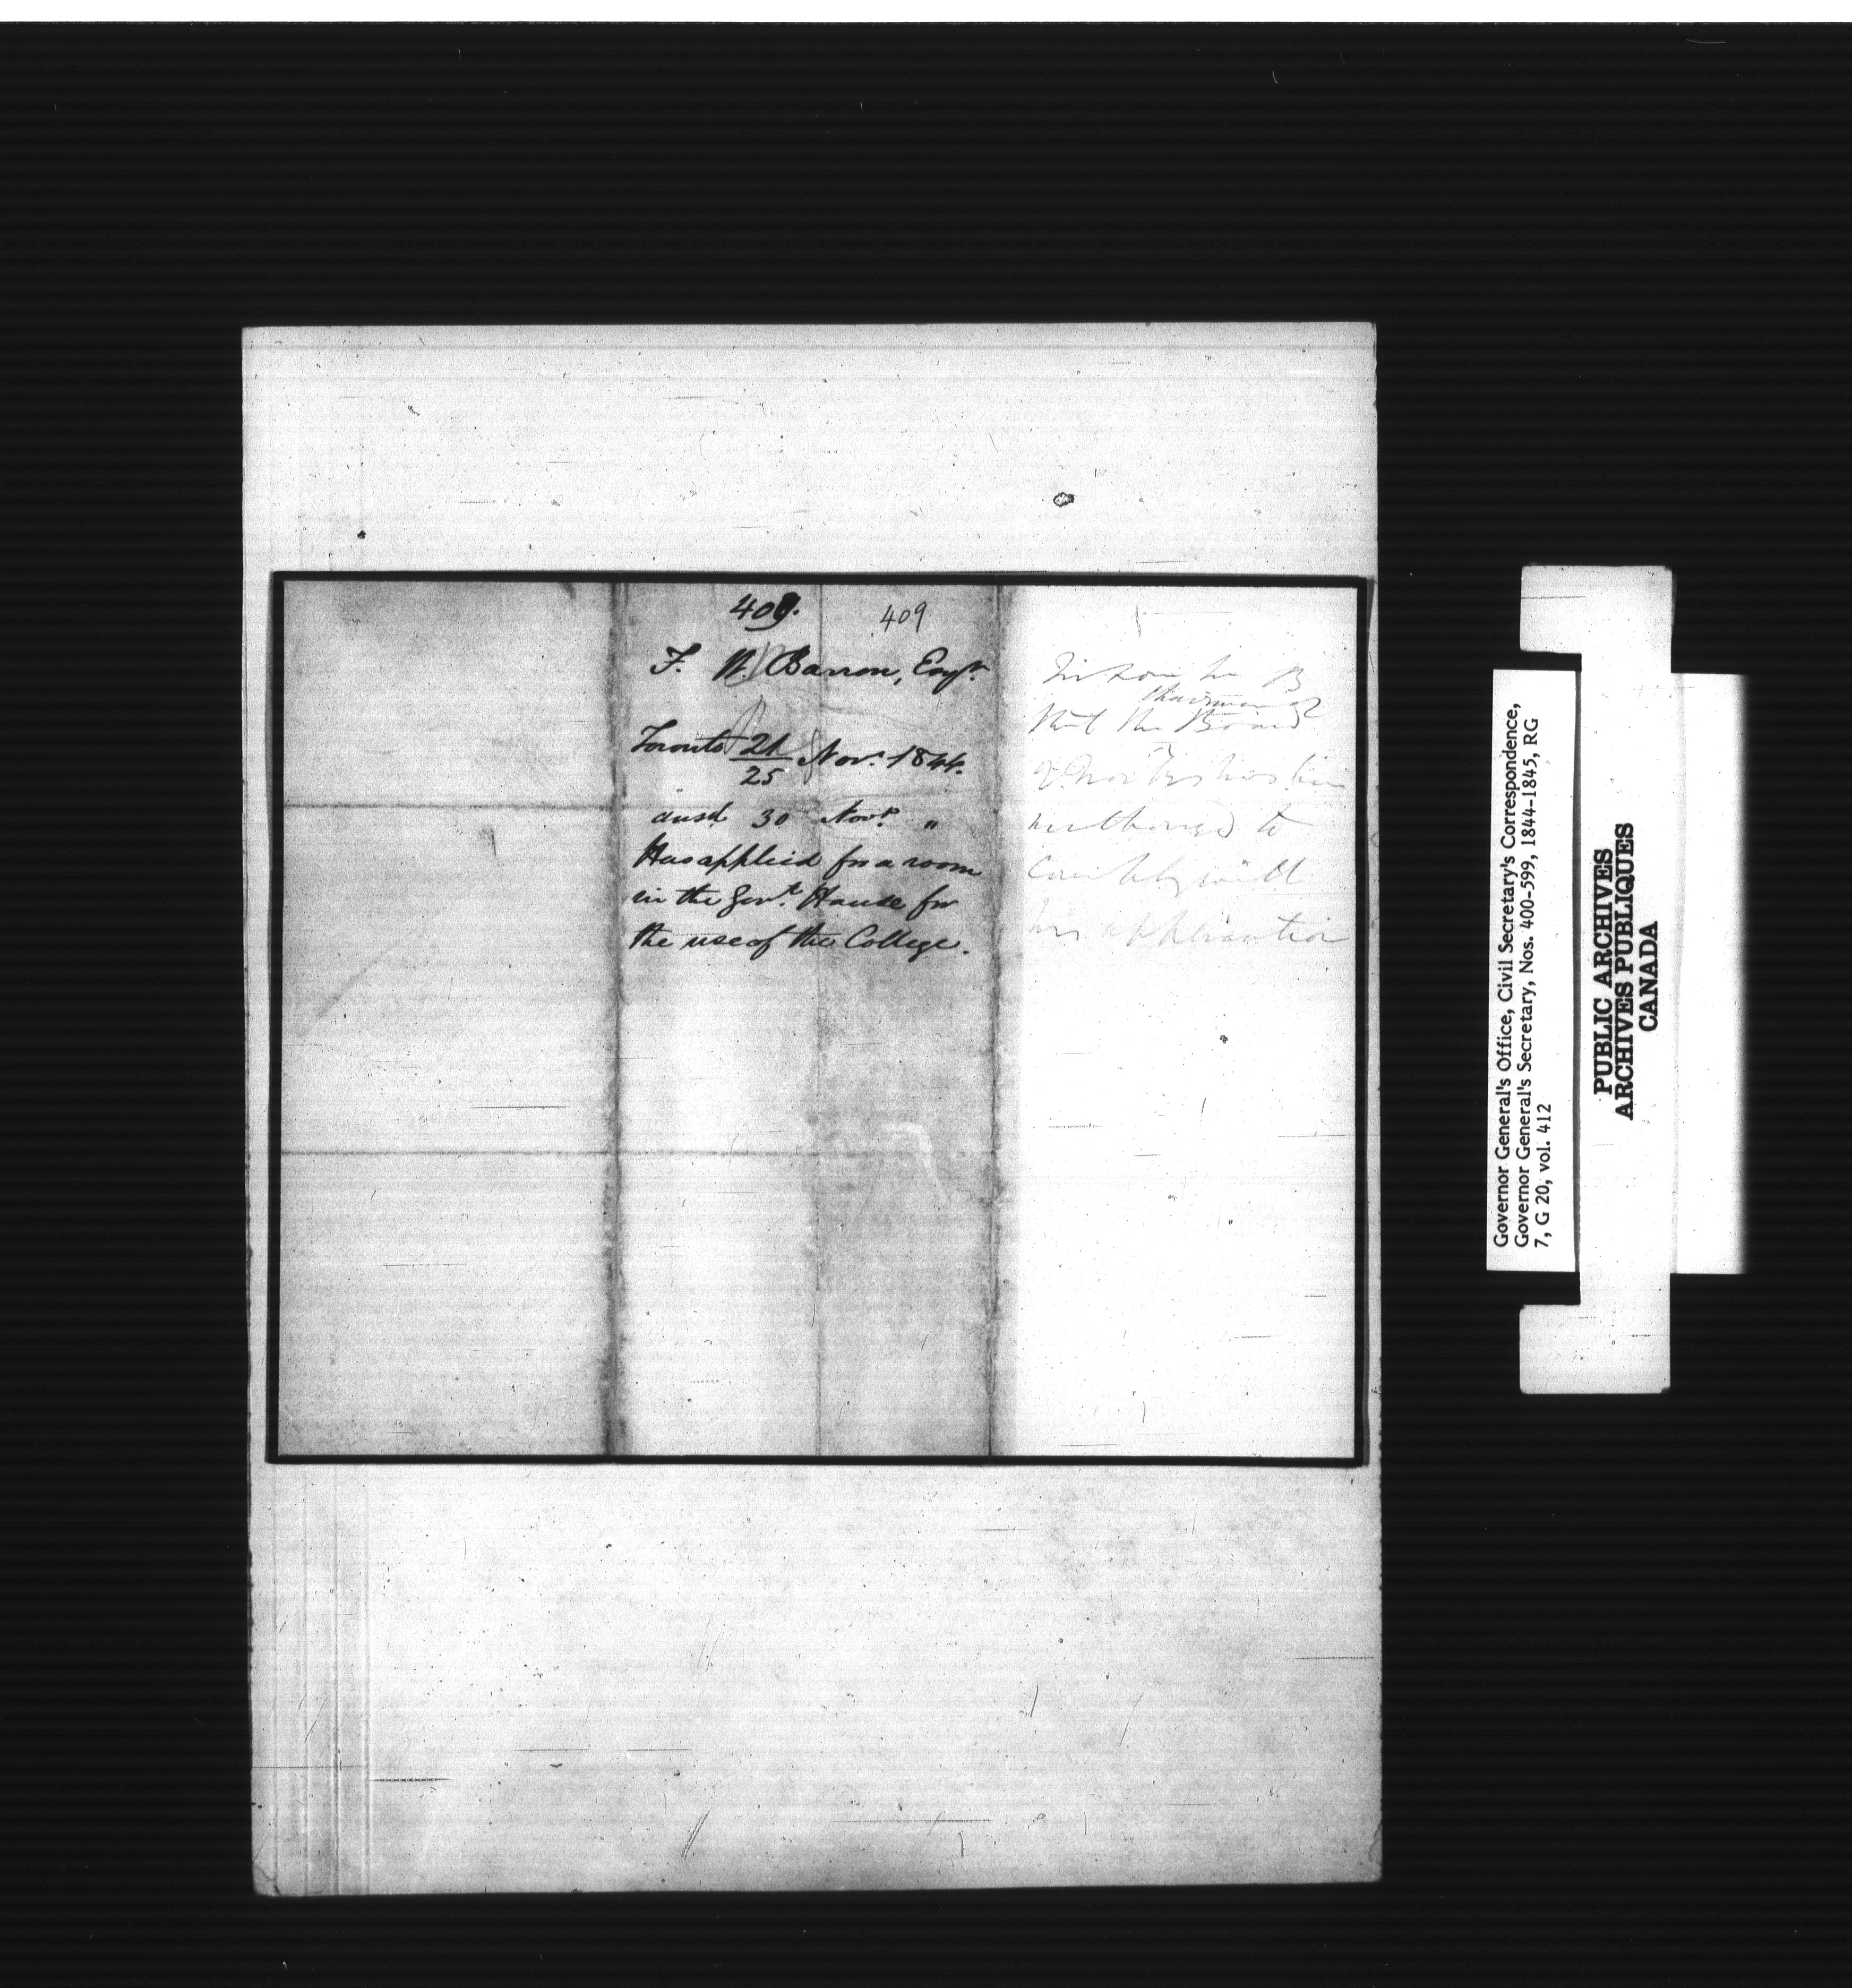 409.
409
F. W. Barron, Esqr.
Toronto 21/25 Novr. 1844.
ansd. 30 Novr. "
Has applied for a room
in the Govt. House for
the use of the College.
Inform Mr B
chairman of
that the Board
of Works has been
authorised to
comply with
his application
Governor General's Office, Civil Secretary's Correspondence,
Governor General's Secretary, Nos. 400-599, 1844-1845, RG
7, G 20, vol. 412
PUBLIC ARCHIVES
ARCHIVES PUBLIQUES
CANADA